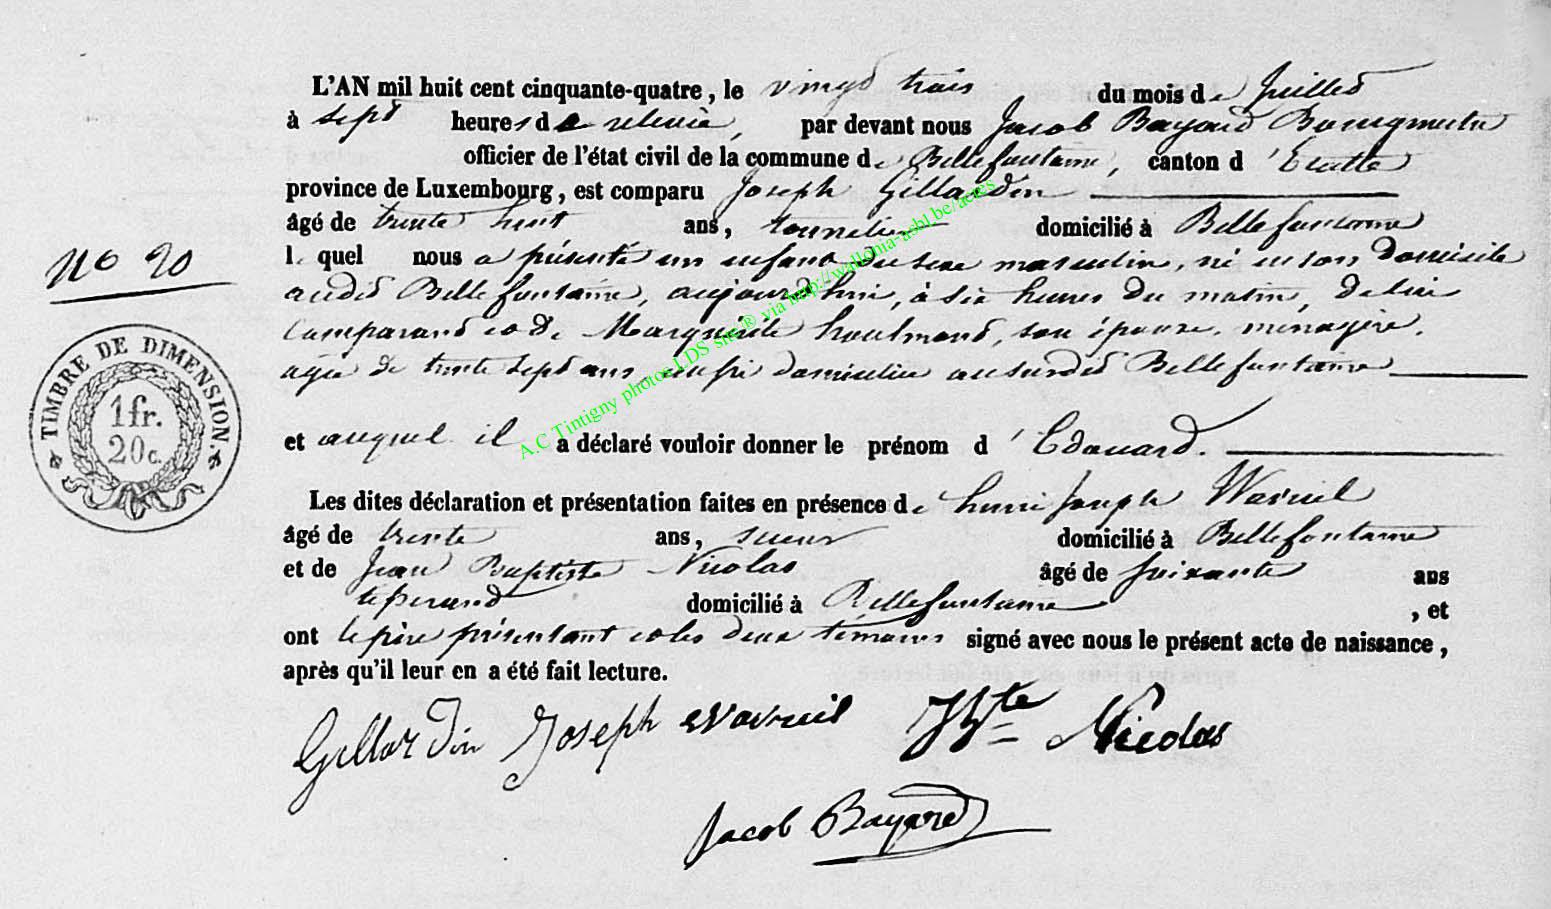 L'AN mil huit cent cinquante-quatre, le vingt trois du mois de Juillet
à sept heures de relevée, par devant nous Jacob Bayard Bourgmestre
officier de l'état civil de la commune de Bellefontaine, canton d'Etalle
province de Luxembourg, est comparu Joseph Gillardin
âgé de trente huit ans, tonnelier domicilié à Bellefontaine
N° 20
le quel nous a présenté un enfant du sexe masculin, né en son domicile
audit Bellefontaine, aujourd'hui, à six heures du matin, de lui
Comparant et de Marguerite houlmond, son épouse, ménagère,
agée de trente sept ans, aussi domiciliée au susdit Bellefontaine
TIMBRE DE DIMENSION
1 fr.
20 c.
et auquel il a déclaré vouloir donner le prénom d'Edouard.
Les dites déclaration et présentation faites en présence de henri Joseph Wavreil
âgé de trente ans, domicilié à Bellefontaine
et de Jean Baptiste Nicolas âgé de soixante ans
tisserand domicilié à Bellefontaine, et
ont le père présentant et les deux témoins signé avec nous le présent acte de naissance,
après qu'il leur en a été fait lecture.
Gillardin Joseph Wavreil JBte Nicolas
Jacob Bayard
A.C Tintigny photos LDS site ® via http://wallonia-asbl.be/actes